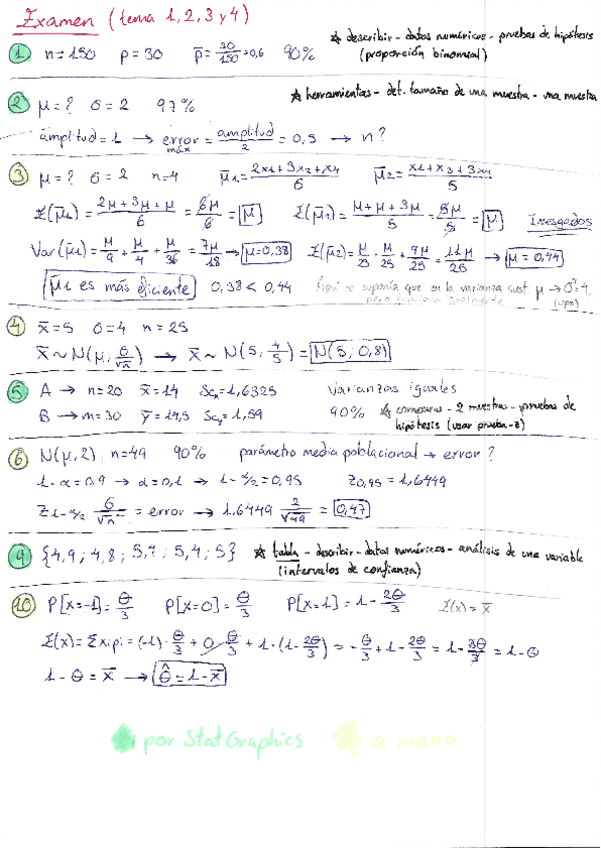 Examen (tema 1, 2, 3 y 4)
★ describir - datos numéricos - pruebas de hipótesis
(proporción binomial)
① n=150 p=30 p̄=30/150=0,6 90%
② μ=? σ=2 97%
★ herramientas - det. tamaño de una muestra - una muestra
amplitud=1 → error máx = amplitud/2 = 0,5 → n?
③ μ=? σ=2 n=4 μ̄1=(2x1+3x2+x4)/6 μ̄2=(x1+x2+3x4)/5
E(μ̄1)=(2μ+3μ+μ)/6=6μ/6=μ E(μ̄2)=(μ+μ+3μ)/5=5μ/5=μ Insesgados
Var(μ̄1)=μ/9+μ/4+μ/36=7μ/18→μ=0,38 E(μ̄2)=μ/25+μ/25+9μ/25=11μ/25→μ=0,44
μ̄1 es más eficiente 0,38<0,44
Aquí se suponía que en la varianza sust. μ→σ²=4,
pero funciona igualmente (ups)
④ x̄=5 σ=4 n=25
x̄~N(μ, σ/√n) → x̄~N(5, 4/5)=N(5; 0,8)
⑤ A → n=20 x̄=14 Scx=1,6325 varianzas iguales
B → m=30 ȳ=14,5 Scy=1,59 90% ★ comparar - 2 muestras - pruebas de
hipótesis (usar prueba-z)
⑥ N(μ,2) n=49 90% parámetro media poblacional → error?
1-α=0,9 → α=0,1 → 1-α/2=0,95 z0,95=1,6449
Z1-α/2 σ/√n = error → 1,6449 2/√49 = 0,47
⑨ {4,9; 4,8; 5,1; 5,4; 5} ★ tabla - describir - datos numéricos - análisis de una variable
(intervalos de confianza)
⑩ P[x=-1]=θ/3 P[x=0]=θ/3 P[x=1]=1-2θ/3 E(x)=x̄
E(x)=Σxipi=(-1)·θ/3+0·θ/3+1·(1-2θ/3)=-θ/3+1-2θ/3=1-3θ/3=1-θ
1-θ=x̄ → θ̂=1-x̄
por StatGraphics a mano